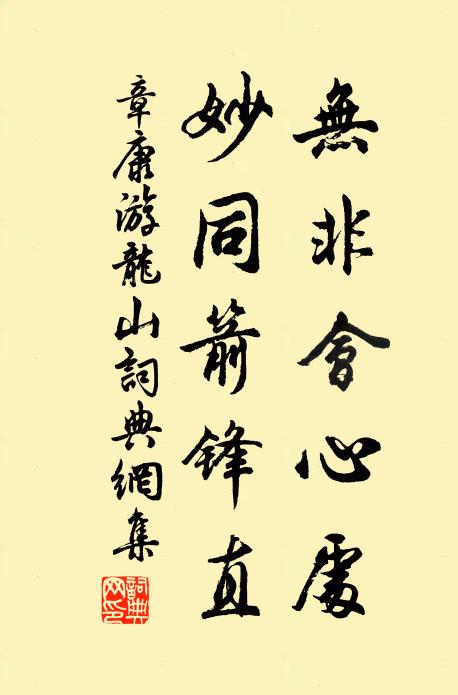 無非會心處
妙同箭鋒直
章康游龍山詞典網集
詞典網印